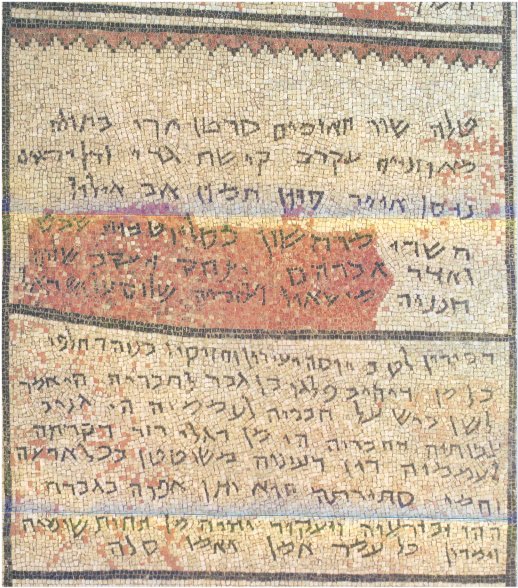 טלה שור תאומים סרטן ארי בתולה
מאוזניים עקרב קישת גדי ודלי דגים
ניסן אייר סיון תמוז אב אילול
תשרי מרחשון כסליו טבית שבט
ואדר אברהם יצחק יעקב שלום
חנניה מישאיל ועזריה שלום על ישראל
דכירין לטב יוסה ועירון וחזיקיו בנוה דחלפי
כל מן דיהיב פלגו בן גבר לחבריה הי אמר
לשן ביש על חבריה לעממיה הי גניב
צבותיה דחבריה הי מן דגלי רזה דקרתה
לעממיה דין דעינוה משוטטן בכל ארעה
וחמי סתירתה הוא יתן אפוה בגברה
ההו ובזרעיה ויעקור יתיה מן תחות שומיה
וימרון כל עמה אמן ואמן סלה